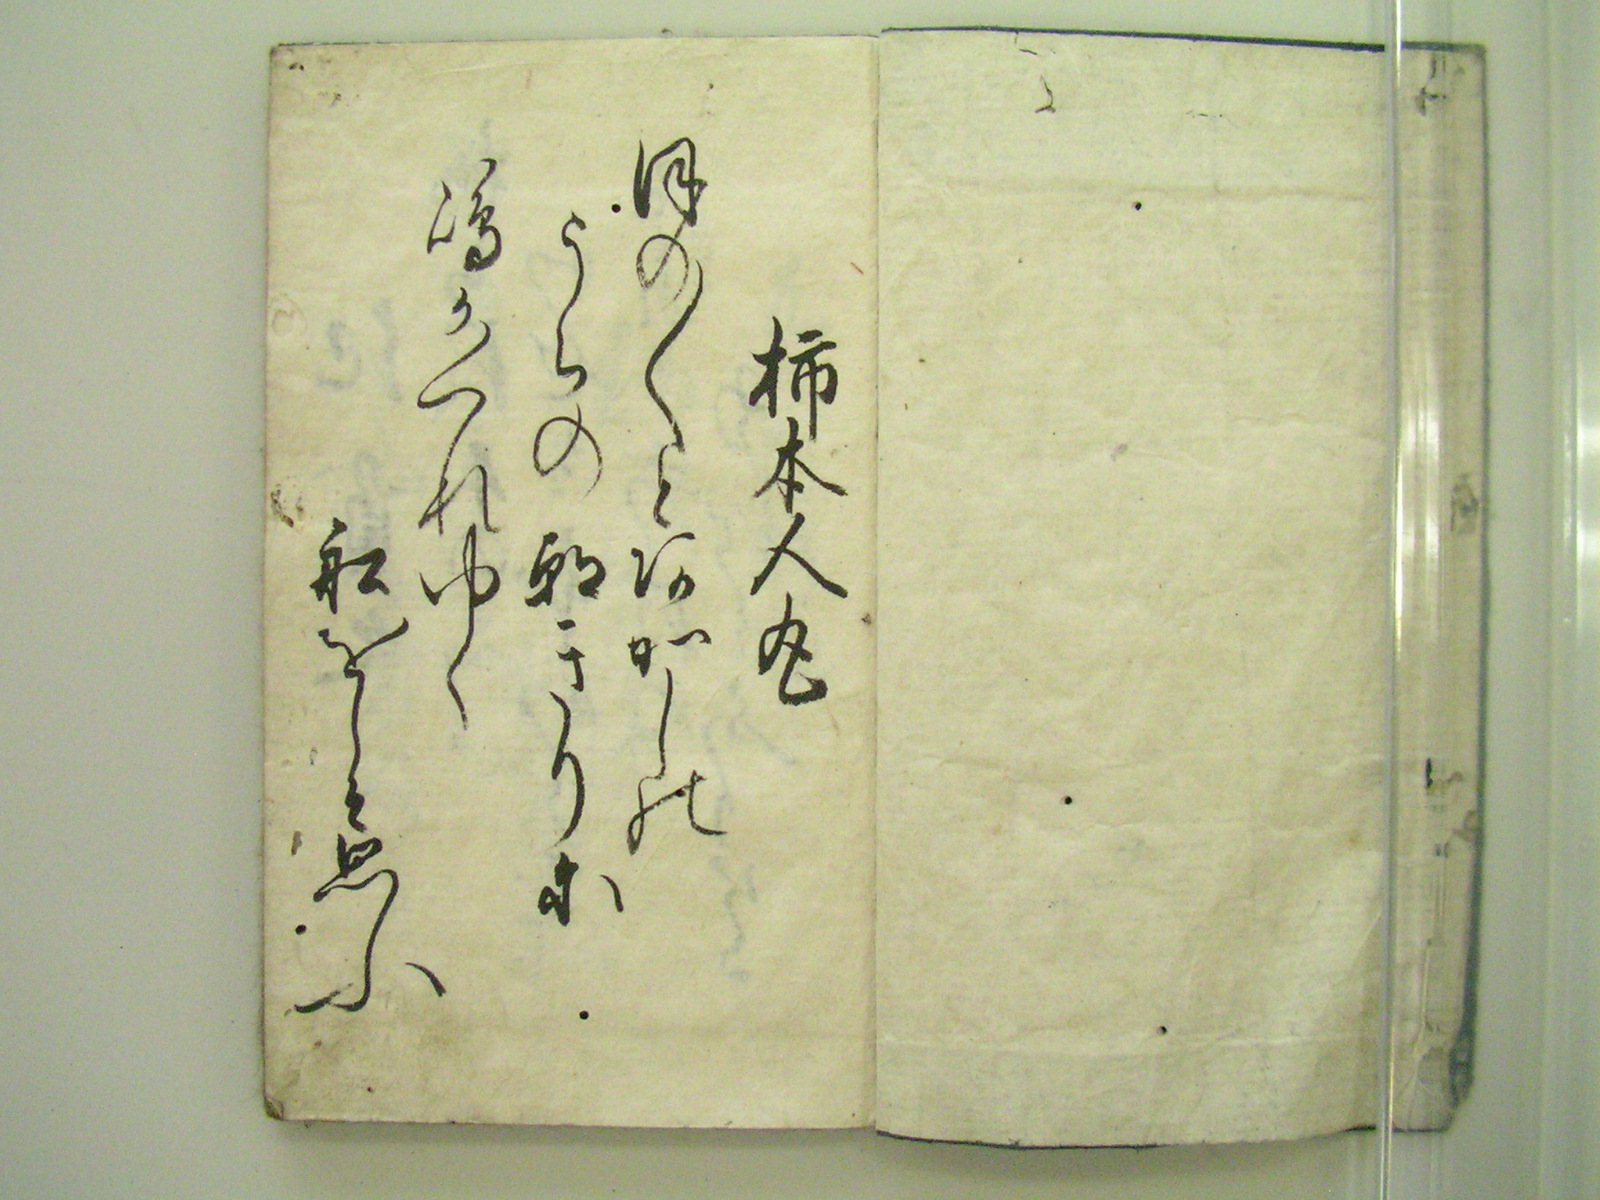 柿本人麿
ほの〱とあかしの
うらの朝きりに
嶋かくれゆく
舩をしそ思ふ